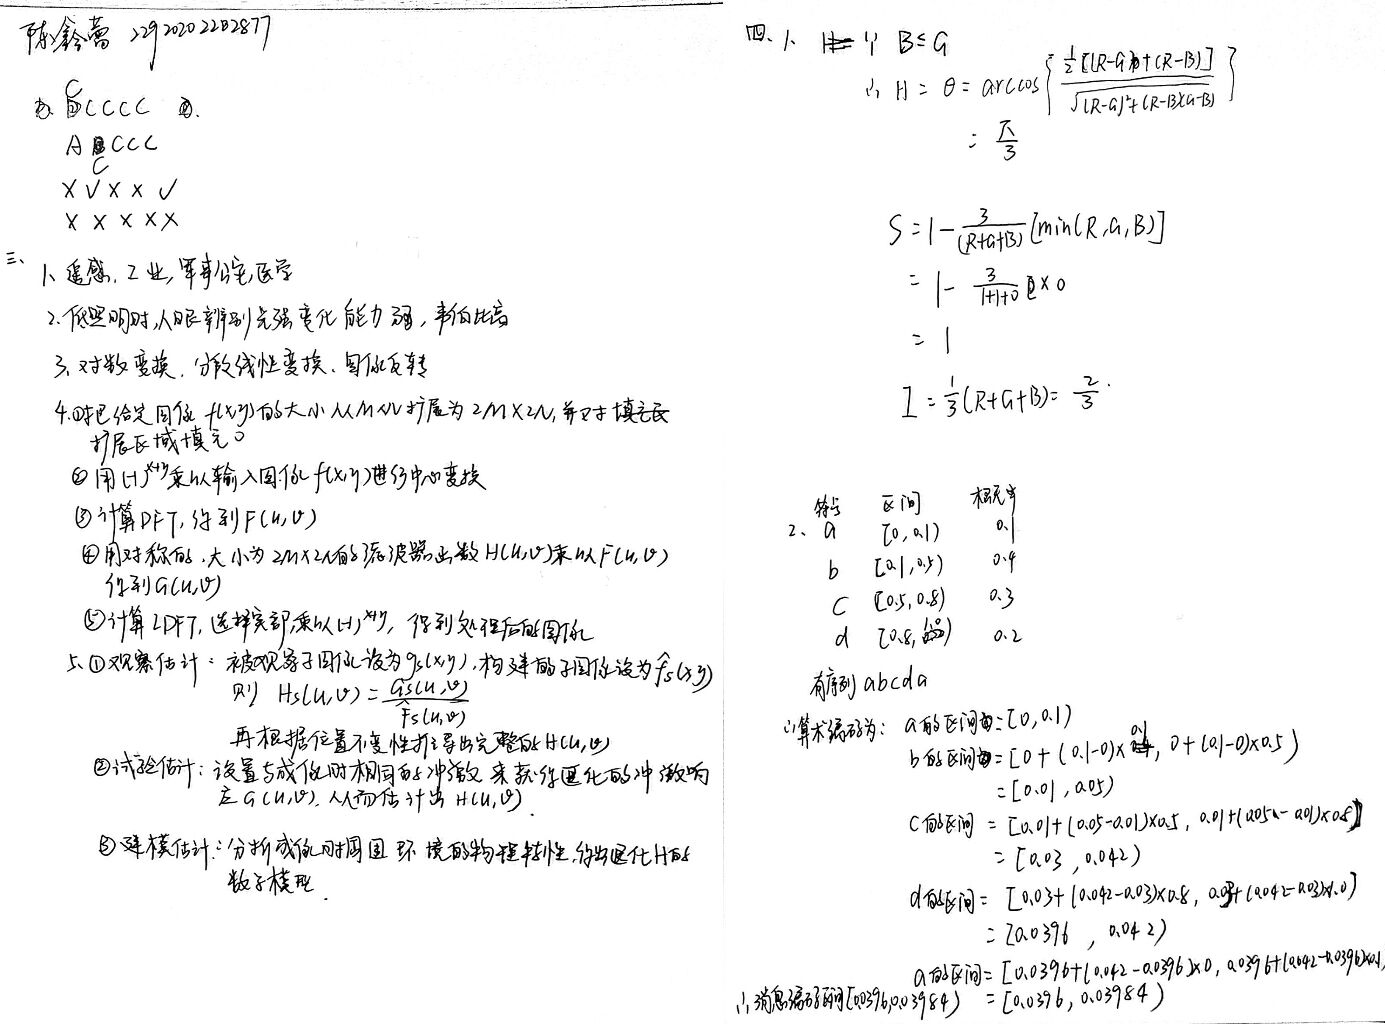 陈鈴蕾 22920202202877
C
B C C C C
A B C C C
C
× √ × × √
× × × × ×
三、
1、遥感、工业,军事公安,医学
2.低照明时,人眼辨别光强变化能力弱,韦伯比高
3、对数变换、分段线性变换、图像反转
4.①把给定图像f(x,y)的大小从M×N扩展为2M×2N,并对填充
扩展区域填充0
②用(-1)^{x+y}乘以输入图像f(x,y)进行中心变换
③计算DFT,得到F(u,v)
④用对称的,大小为2M×2N的滤波器函数H(u,v)乘以F(u,v)
得到G(u,v)
⑤计算IDFT,选择实部,乘以(-1)^{x+y},得到处理后的图像
5.①观察估计:被观察子图像设为gs(x,y),构建的子图像设为f̂s(x,y)
则 Hs(u,v)=Gs(u,v)/F̂s(u,v)
再根据位置不变性推导出完整的H(u,v)
②试验估计:设置与成像时相同的冲激来获得退化的冲激响
应G(u,v).从而估计出H(u,v).
③建模估计:分析成像时周围环境的物理特性,得出退化H的
数学模型.
四、1、 B≤G
∴ H = θ = arccos{ ½[(R-G)+(R-B)] / √((R-G)²+(R-B)(G-B)) }
= π/3
S = 1 - 3/(R+G+B) [min(R,G,B)]
= 1 - 3/(1+1+0) × 0
= 1
I = 1/3(R+G+B) = 2/3.
符号 区间 概率
2、 a [0,0.1) 0.1
b [0.1,0.5) 0.4
c [0.5,0.8) 0.3
d [0.8,1.0) 0.2
有序列abcda
∴算术编码为: a的区间=[0,0.1)
b的区间=[0+(0.1-0)×0.1, 0+(0.1-0)×0.5)
=[0.01,0.05)
c的区间=[0.01+(0.05-0.01)×0.5, 0.01+(0.05-0.01)×0.8)
=[0.03,0.042)
d的区间=[0.03+(0.042-0.03)×0.8, 0.03+(0.042-0.03)×1.0)
=[0.0396,0.042)
a的区间=[0.0396+(0.042-0.0396)×0, 0.0396+(0.042-0.0396)×0.1,
=[0.0396,0.03984)
∴消息编码区间[0.0396,0.03984)